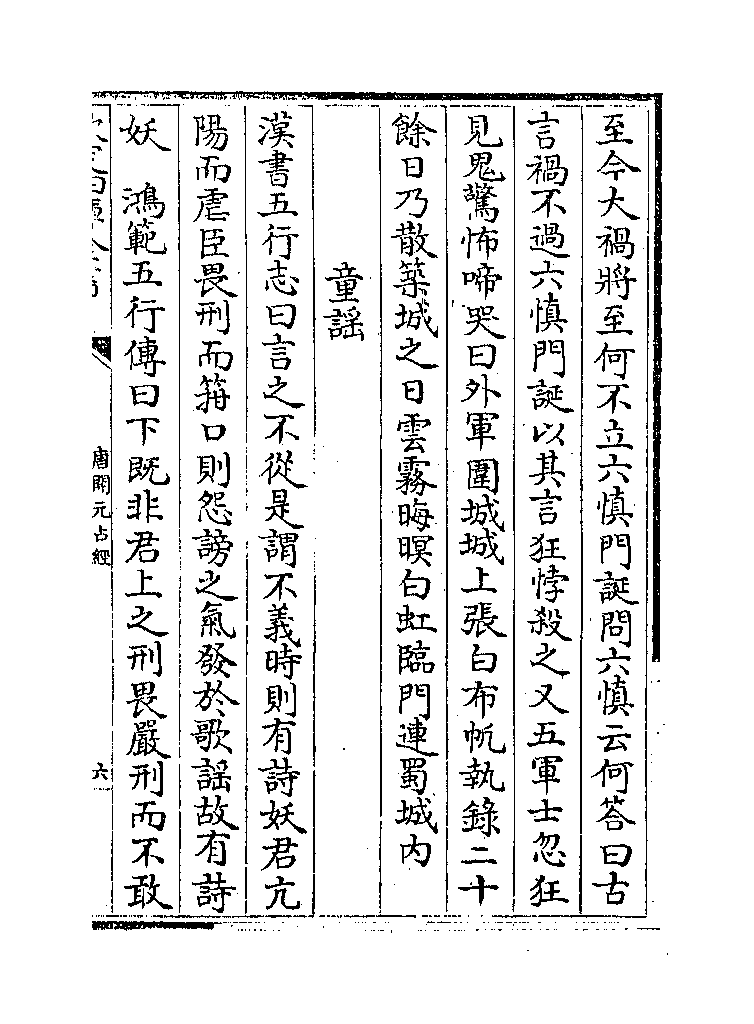 至今大禍將至何不立六慎門誕問六慎云何答曰古
言禍不過六慎門誕以其言狂悖殺之又五軍士忽狂
見鬼驚怖啼哭曰外軍圍城城上張白布帆執錄二十
餘日乃散築城之日雲霧晦暝白虹臨門連蜀城内
童謡
漢書五行志曰言之不從是謂不義時則有詩妖君亢
陽而虐臣畏刑而箝口則怨謗之氣發於歌謡故有詩
妖　鴻範五行傳曰下既非君上之刑畏嚴刑而不敢
唐開元占經
六